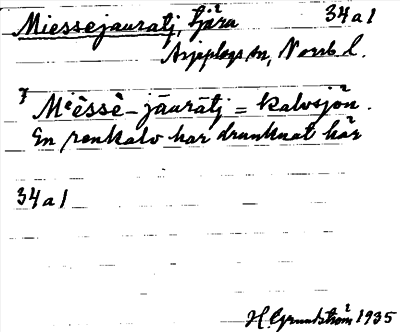 Miessejauratj, tjärn 34 a 1
Arjeplogs sn, Norrb. l.
Mᵉèssè-jāurātj = kalvsjön.
En renkalv har drunknat här
34 a 1
H. Grundström 1935